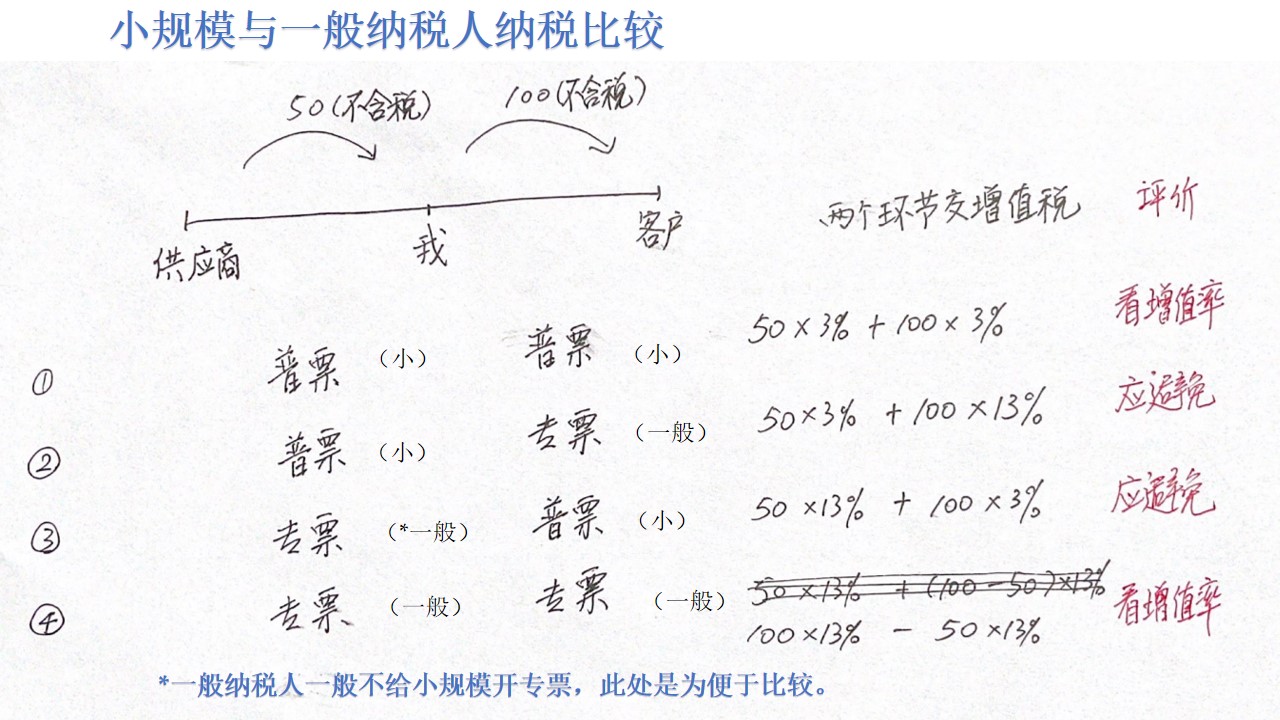 小规模与一般纳税人纳税比较
50(不含税) 100(不含税)
供应商 我 客户 两个环节交增值税 评价
① 普票 （小） 普票 （小） 50×3% + 100×3% 看增值率
② 普票 （小） 专票 （一般） 50×3% + 100×13% 应避免
③ 专票 （*一般） 普票 （小） 50×13% + 100×3% 应避免
④ 专票 （一般） 专票 （一般） 50×13% + (100-50)×13% 看增值率
100×13% - 50×13%
*一般纳税人一般不给小规模开专票，此处是为便于比较。